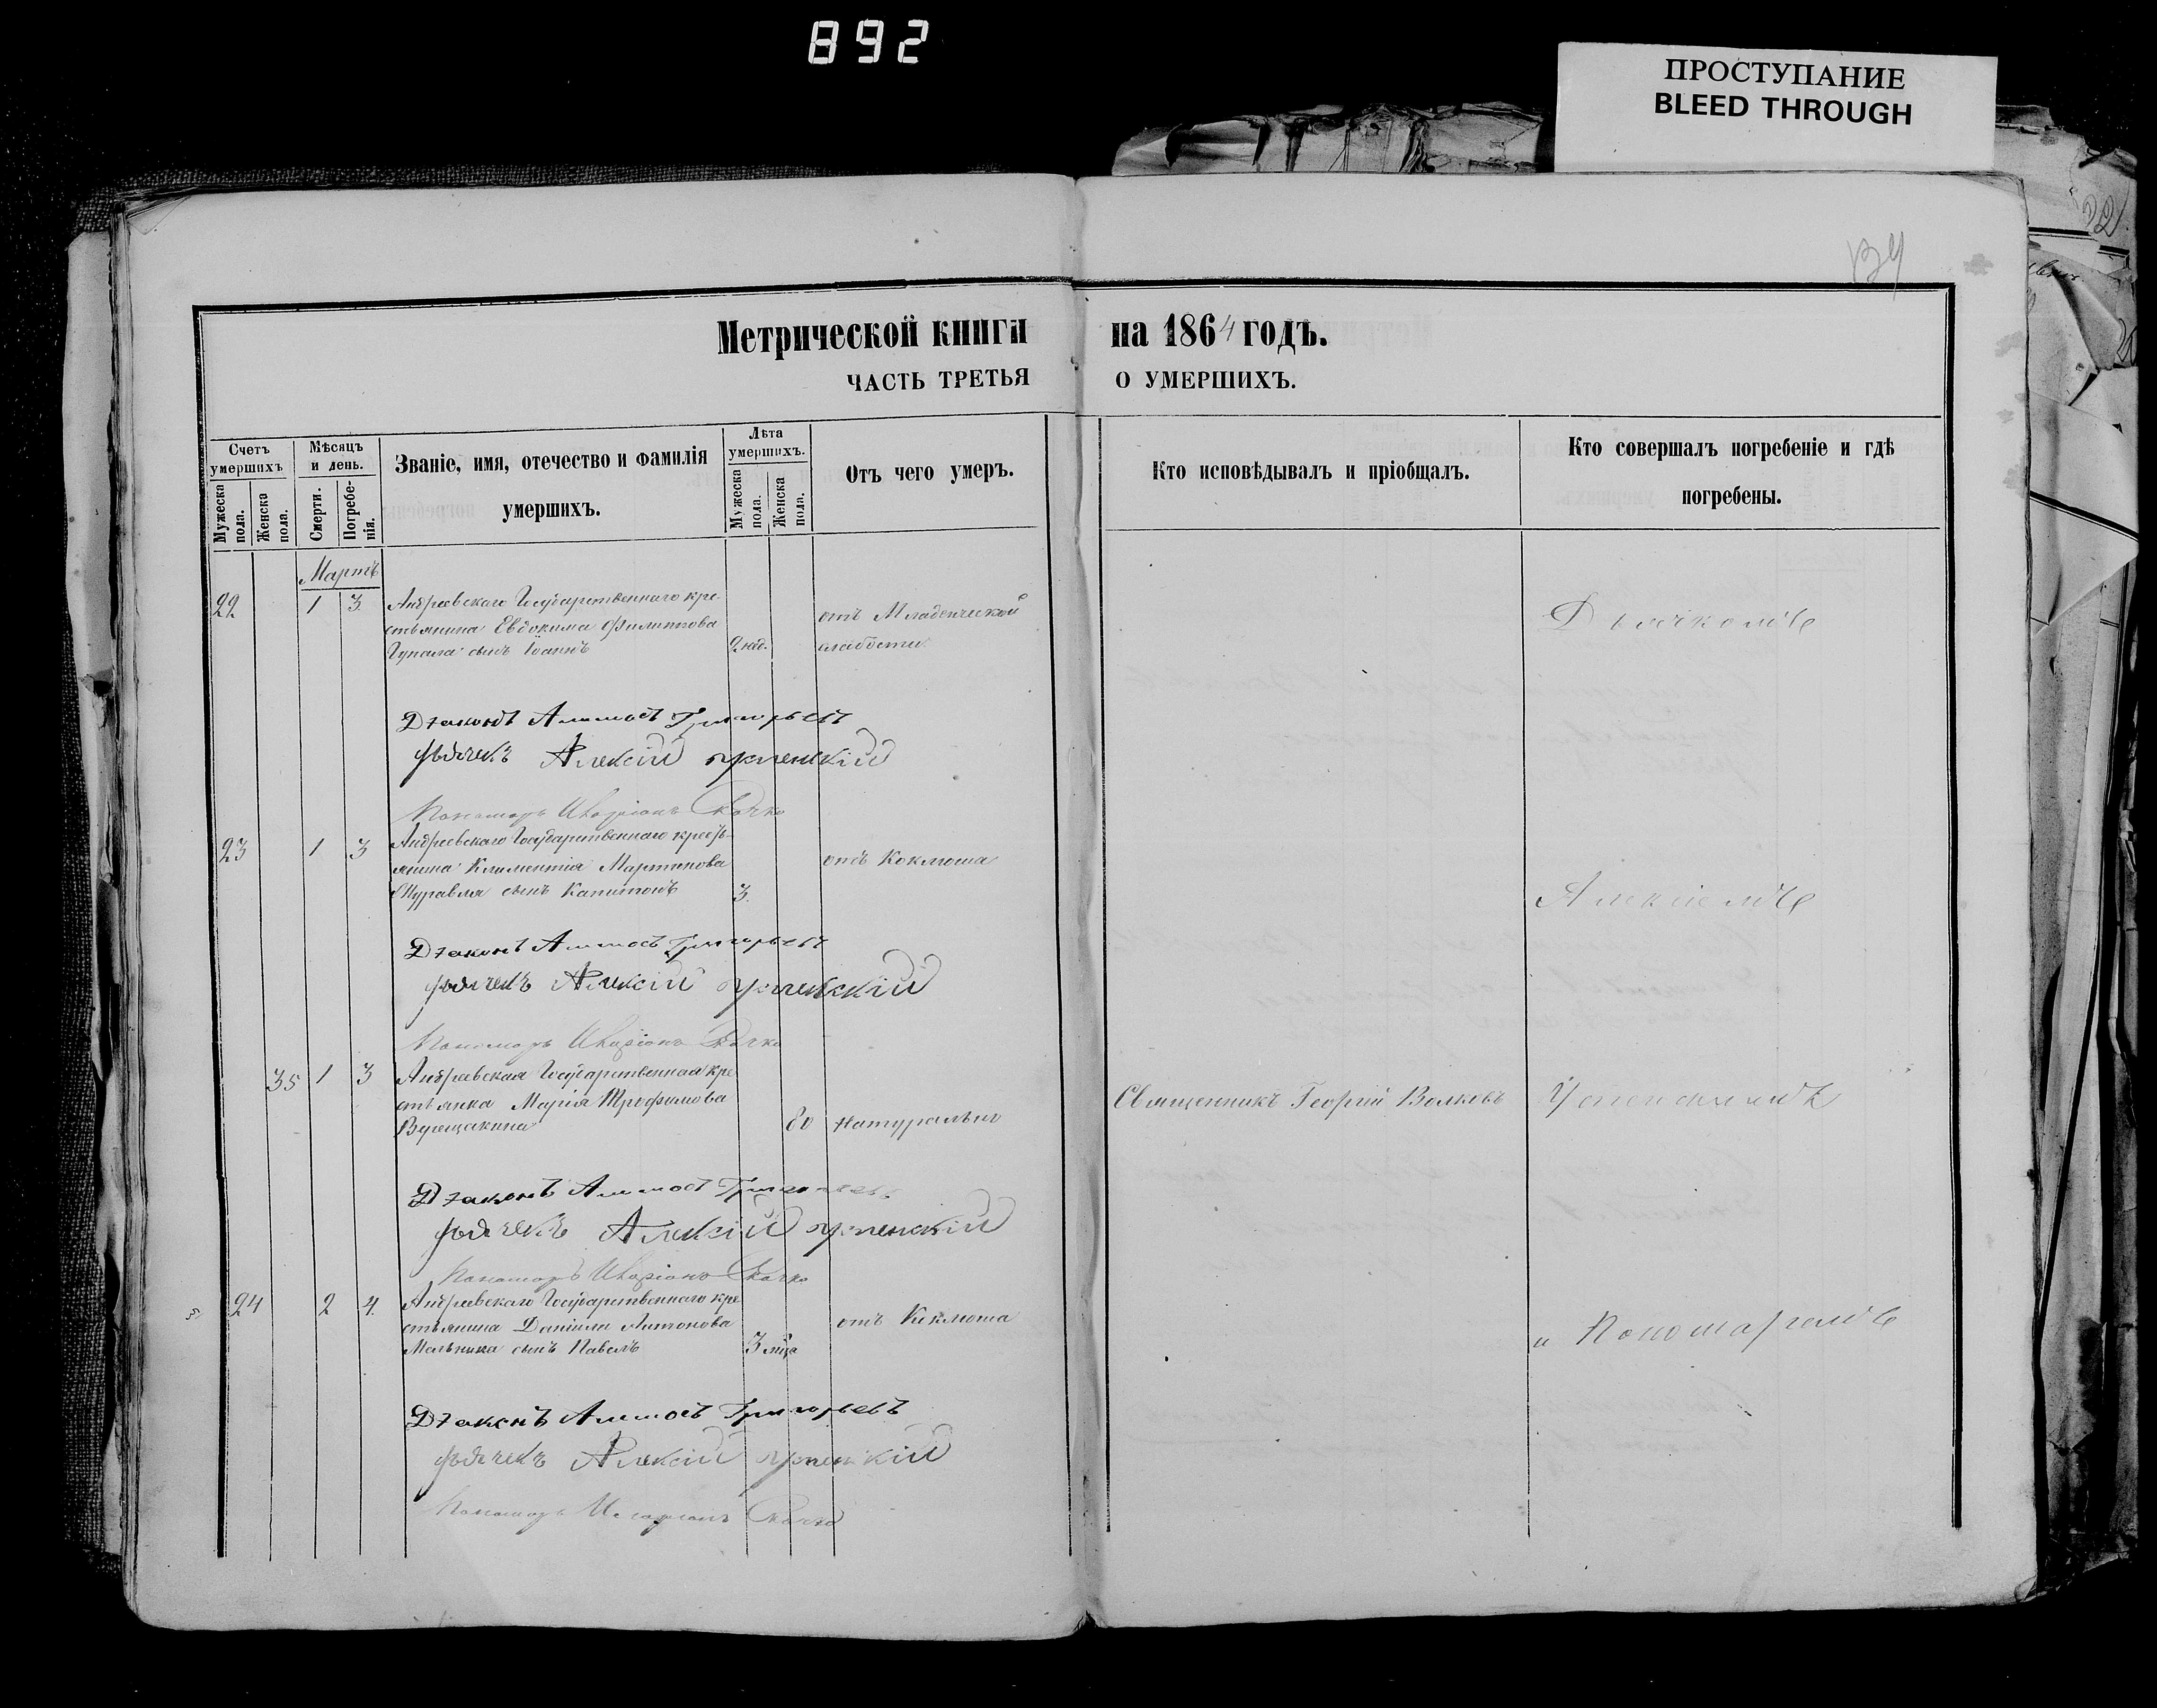 892
ПРОСТУПАНИЕ
BLEED THROUGH
134
Метрической книги на 1864 годъ.
ЧАСТЬ ТРЕТЬЯ О УМЕРШИХЪ.
Счетъ умершихъ
Мужеска пола.
Женска пола.
Мѣсяцъ и день.
Смерти.
Погребе-нія.
Званіе, имя, отечество и фамилія
умершихъ.
Лѣта умершихъ.
Мужеска пола.
Женска пола.
Отъ чего умеръ.
Кто исповѣдывалъ и пріобщалъ.
Кто совершалъ погребеніе и гдѣ
погребены.
Мартъ
22 1 3 Андреевскаго Государственнаго кре-
стьянина Евдокима Филиппова
сынъ Іоаннъ 2 нед.
отъ Младенческой
слабости
Дьячкомъ
Діаконъ Григорьевъ
дьячекъ Алексій Успенскій
Пономарь Иларіонъ
23 1 3 Андреевскаго Государственнаго кресть-
янина Климентія Мартинова
Журавля сынъ Капитонъ 3.
отъ Коклюша
Алексіемъ
Діаконъ Григорьевъ
дьячекъ Алексій Успенскій
Пономарь Иларіонъ
35 1 3 Андреевская Государственная кре
стьянка Марія Трофимова
80 Натурально
Священникъ Георгій Волковъ
Успенскимъ
Діаконъ Григорьевъ
дьячекъ Алексій Успенскій
Пономарь Иларіонъ
24 2 4. Андреевскаго Государственнаго кре
стьянина Даніила Антонова
Мельника сынъ Павелъ 3 мца
отъ Коклюша
и Пономаремъ
Діаконъ Григорьевъ
дьячекъ Алексій Успенскій
Пономарь Иларіонъ